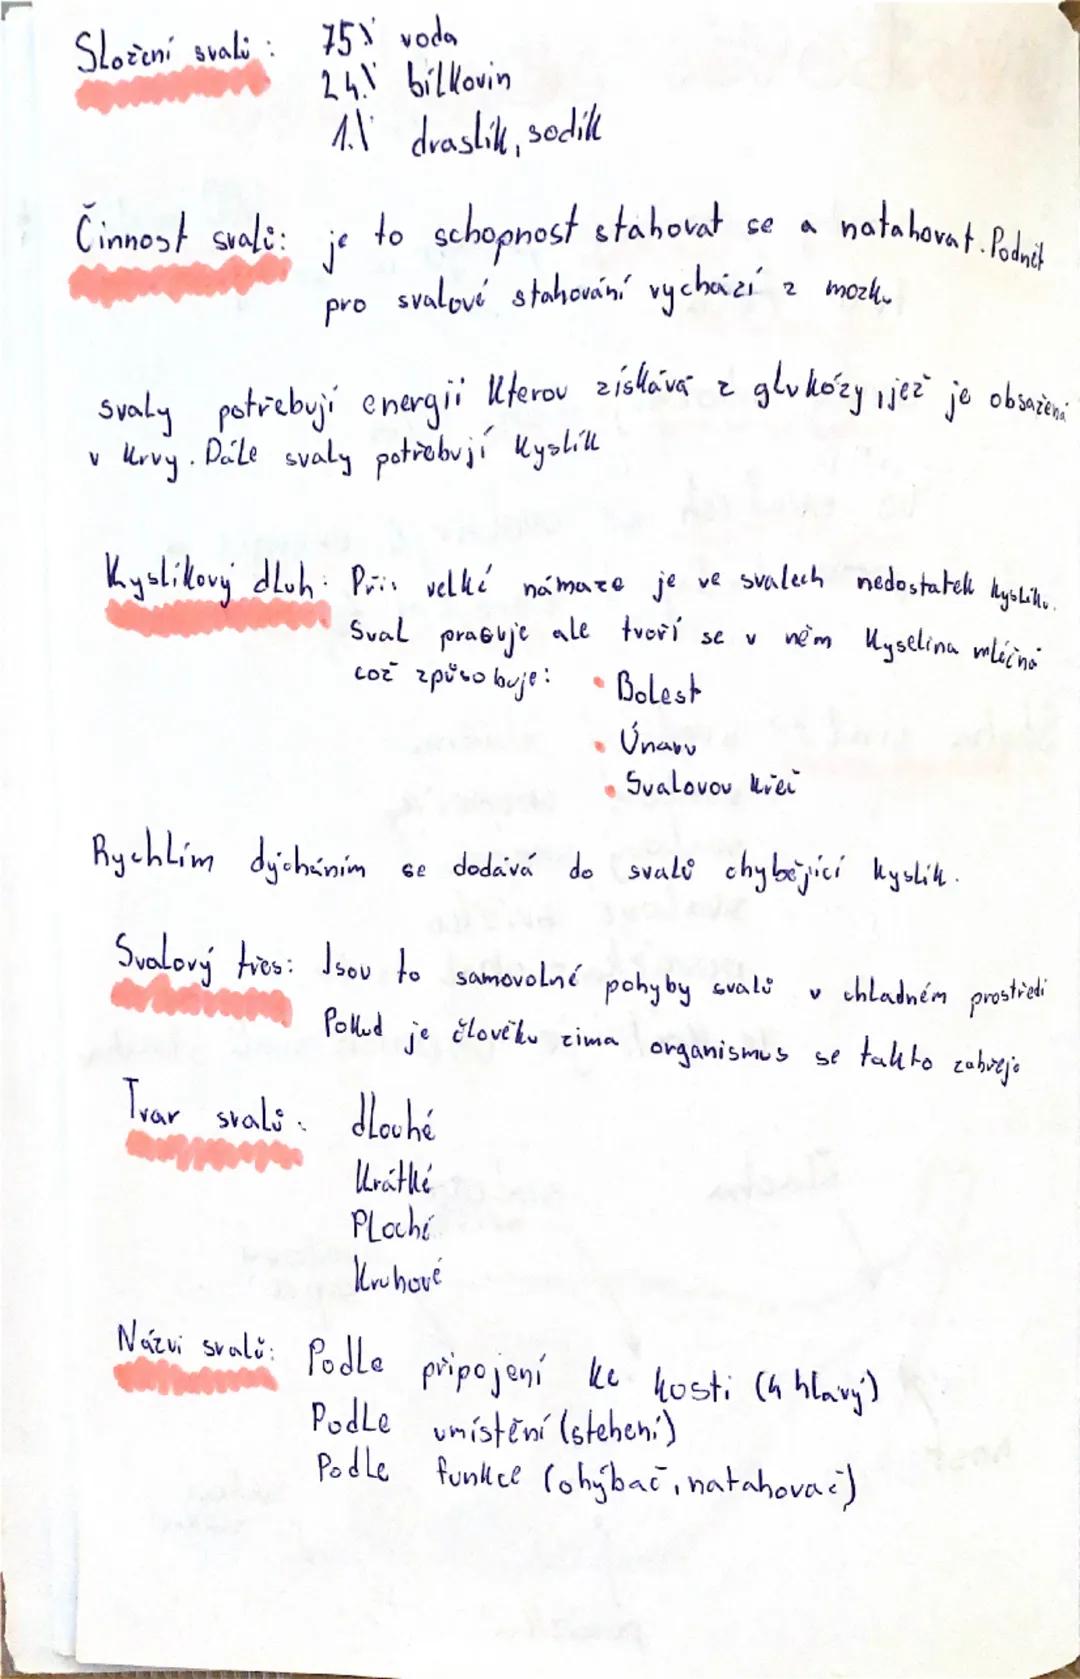 Složení svalů: 75% voda
24% bílkovin
1% draslík, sodík
Činnost svalů: je to schopnost stahovat se a natahovat. Podnět
pro svalové stahování vychází z mozku
svaly potřebují energii kterou získává z glukózy, jež je obsažena
v krvy. Dále svaly potřebují kyslík
Kyslíkový dluh: Při velké námaze je ve svalech nedostatek kyslíku.
Sval pracuje ale tvoří se v něm kyselina mléčná
což způsobuje: • Bolest
• Únavu
• Svalovou křeč
Rychlím dýcháním se dodává do svalů chybějící kyslík.
Svalový třes: Jsou to samovolné pohyby svalů v chladném prostředí
Pokud je člověku zima organismus se takto zahřeje
Tvar svalů: dlouhé
Krátké
Ploché
Kruhové
Názvi svalů: Podle připojení ke kosti (4 hlavý)
Podle umístění (stehení)
Podle funkce (ohýbač, natahovač)